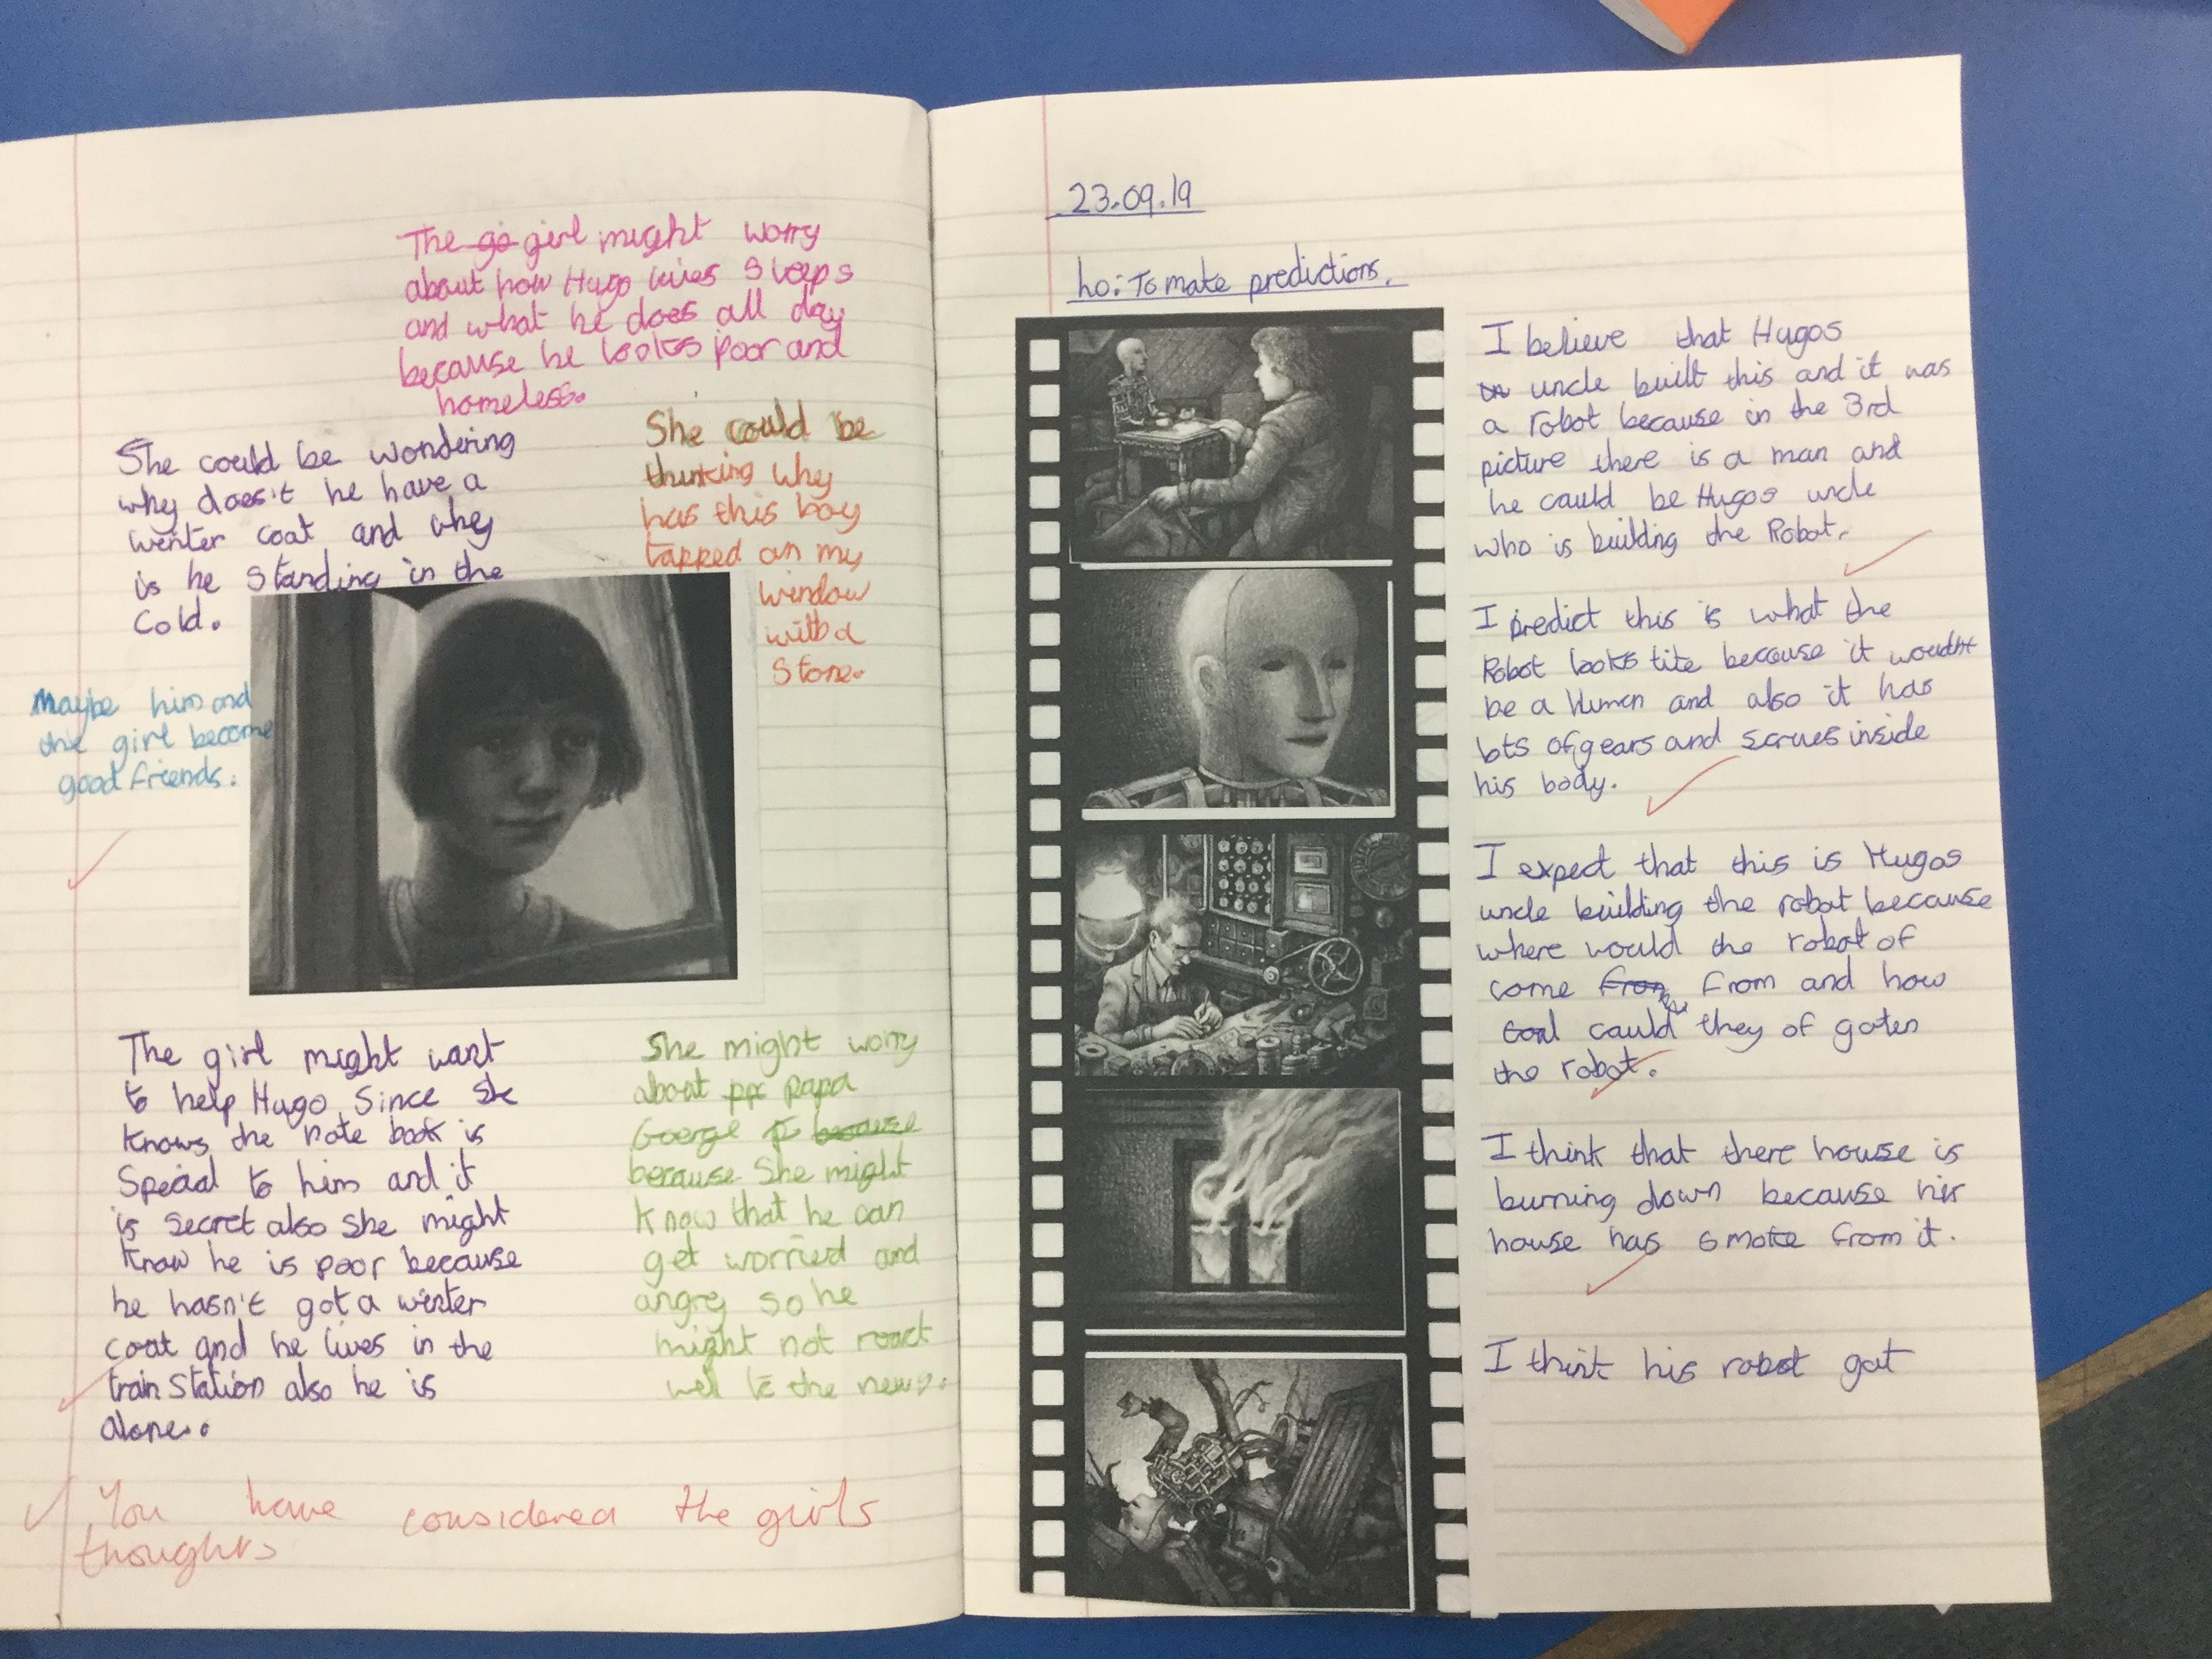 The go girl might worry
about how Hugo lives sleeps
and what he does all day
because he looks poor and
homeless.
She could be wondering
why does't he have a
winter coat and why
is he standing in the
cold.
She could be
thinking why
has this boy
tapped on my
window
with a
stone.
Maybe him and
the girl become
good friends.
The girl might want
to help Hugo since she
knows the note book is
special to him and it
is secret also she might
know he is poor because
he hasn't got a winter
coat and he lives in the
train station also he is
alone.
She might worry
about pp papa
Goerge because
because she might
know that he can
get worried and
angry so he
might not react
well to the news.
You have considered the girls
thoughts
23.09.19
Lo: To make predictions.
I believe that Hugos
un uncle built this and it was
a robot because in the 3rd
picture there is a man and
he could be Hugos uncle
who is building the Robot.
I predict this is what the
Robot looks like because it wouldnt
be a Human and also it has
lots of gears and scrues inside
his body.
I expect that this is Hugos
uncle building the robot because
where would the robot of
come from from and how
coul could they of goten
the robot.
I think that there house is
burning down because his
house has smoke from it.
I think his robot got